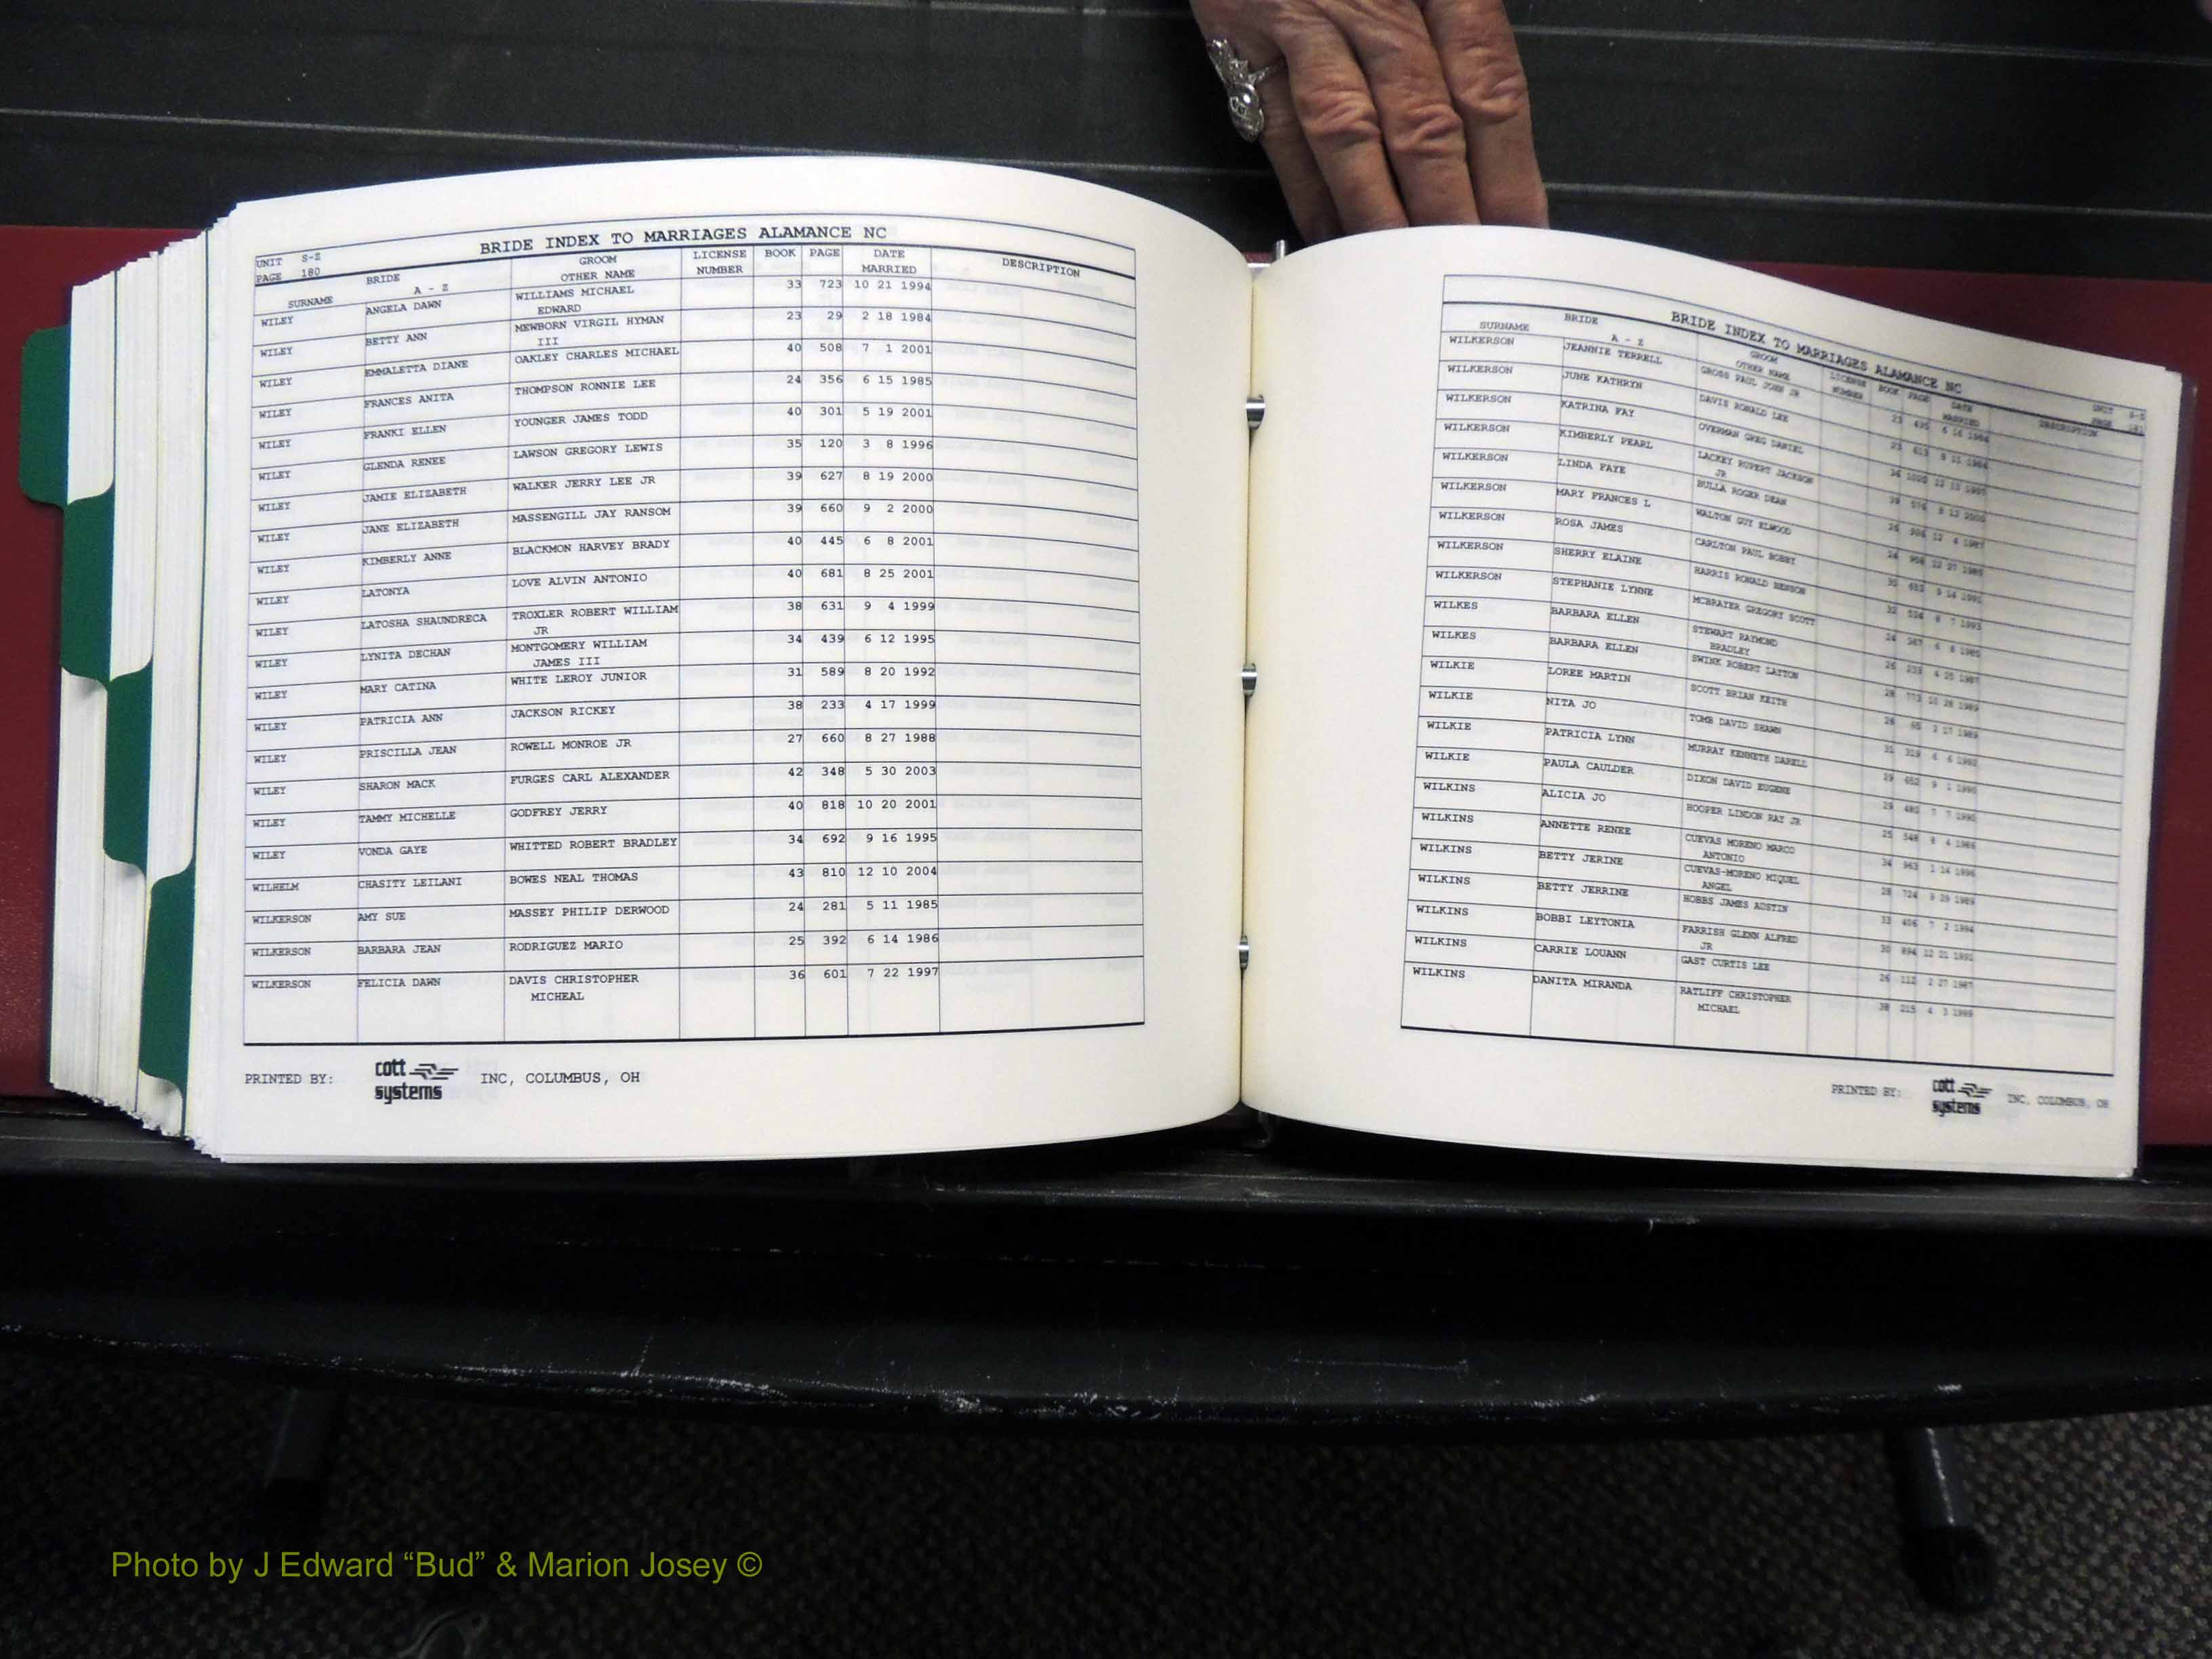 BRIDE INDEX TO MARRIAGES ALAMANCE NC
UNIT S-Z
PAGE 180
SURNAME BRIDE A - Z GROOM OTHER NAME LICENSE NUMBER BOOK PAGE DATE MARRIED DESCRIPTION
WILEY ANGELA DAWN WILLIAMS MICHAEL EDWARD 33 723 10 21 1994
WILEY BETTY ANN MEWBORN VIRGIL HYMAN III 23 29 2 18 1984
WILEY EMMALETTA DIANE OAKLEY CHARLES MICHAEL 40 508 7 1 2001
WILEY FRANCES ANITA THOMPSON RONNIE LEE 24 356 6 15 1985
WILEY FRANKI ELLEN YOUNGER JAMES TODD 40 301 5 19 2001
WILEY GLENDA RENEE LAWSON GREGORY LEWIS 35 120 3 8 1996
WILEY JAMIE ELIZABETH WALKER JERRY LEE JR 39 627 8 19 2000
WILEY JANE ELIZABETH MASSENGILL JAY RANSOM 39 660 9 2 2000
WILEY KIMBERLY ANNE BLACKMON HARVEY BRADY 40 445 6 8 2001
WILEY LATONYA LOVE ALVIN ANTONIO 40 681 8 25 2001
WILEY LATOSHA SHAUNDRECA TROXLER ROBERT WILLIAM JR 38 631 9 4 1999
WILEY LYNITA DECHAN MONTGOMERY WILLIAM JAMES III 34 439 6 12 1995
WILEY MARY CATINA WHITE LEROY JUNIOR 31 589 8 20 1992
WILEY PATRICIA ANN JACKSON RICKEY 38 233 4 17 1999
WILEY PRISCILLA JEAN ROWELL MONROE JR 27 660 8 27 1988
WILEY SHARON MACK FURGES CARL ALEXANDER 42 348 5 30 2003
WILEY TAMMY MICHELLE GODFREY JERRY 40 818 10 20 2001
WILEY VONDA GAYE WHITTED ROBERT BRADLEY 34 692 9 16 1995
WILHELM CHASITY LEILANI BOWES NEAL THOMAS 43 810 12 10 2004
WILKERSON AMY SUE MASSEY PHILIP DERWOOD 24 281 5 11 1985
WILKERSON BARBARA JEAN RODRIGUEZ MARIO 25 392 6 14 1986
WILKERSON FELICIA DAWN DAVIS CHRISTOPHER MICHEAL 36 601 7 22 1997
PRINTED BY: cott systems INC, COLUMBUS, OH
BRIDE INDEX TO MARRIAGES ALAMANCE NC
UNIT S-Z
PAGE 181
SURNAME BRIDE A - Z GROOM OTHER NAME LICENSE NUMBER BOOK PAGE DATE MARRIED DESCRIPTION
WILKERSON JEANNIE TERRELL GROSS PAUL JOHN JR
WILKERSON JUNE KATHRYN DAVIS RONALD LEE
WILKERSON KATRINA FAY OVERMAN GREG DANIEL
WILKERSON KIMBERLY PEARL LACKEY RUPERT JACKSON JR
WILKERSON LINDA FAYE BULLA ROGER DEAN
WILKERSON MARY FRANCES L WALTON GUY ELWOOD
WILKERSON ROSA JAMES CARLTON PAUL BOBBY
WILKERSON SHERRY ELAINE HARRIS RONALD BENSON
WILKERSON STEPHANIE LYNNE MCBRAYER GREGORY SCOTT
WILKES BARBARA ELLEN STEWART RAYMOND BRADLEY
WILKES BARBARA ELLEN SWINK ROBERT LAYTON
WILKIE LOREE MARTIN SCOTT BRIAN KEITH
WILKIE NITA JO TOMB DAVID SHAWN
WILKIE PATRICIA LYNN MURRAY KENNETH DARELL
WILKIE PAULA CAULDER DIXON DAVID EUGENE
WILKINS ALICIA JO HOOPER LINDON RAY JR
WILKINS ANNETTE RENEE CUEVAS MORENO MARCO ANTONIO
WILKINS BETTY JERINE CUEVAS-MORENO MIQUEL ANGEL
WILKINS BETTY JERRINE HOBBS JAMES AUSTIN
WILKINS BOBBI LEYTONIA FARRISH GLENN ALFRED JR
WILKINS CARRIE LOUANN GAST CURTIS LEE
WILKINS DANITA MIRANDA RATLIFF CHRISTOPHER MICHAEL
PRINTED BY: cott systems INC, COLUMBUS, OH
Photo by J Edward “Bud” & Marion Josey ©